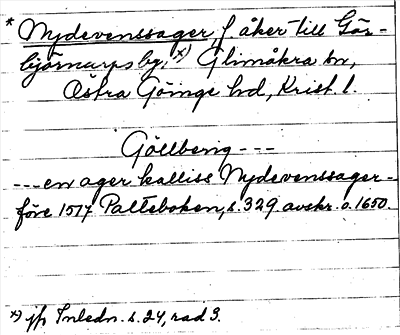 * Nydevenssager, f åker till Gör-
björnarps by, *) Glimåkra sn,
Östra Göinge hd, Krist l.
Göllberig ---
--- en ager kalliss Nydevenssager -
före 1517 Palteboken, s. 329 avskr. o. 1650.
*) jfr Inledn. s. 24, rad 3.